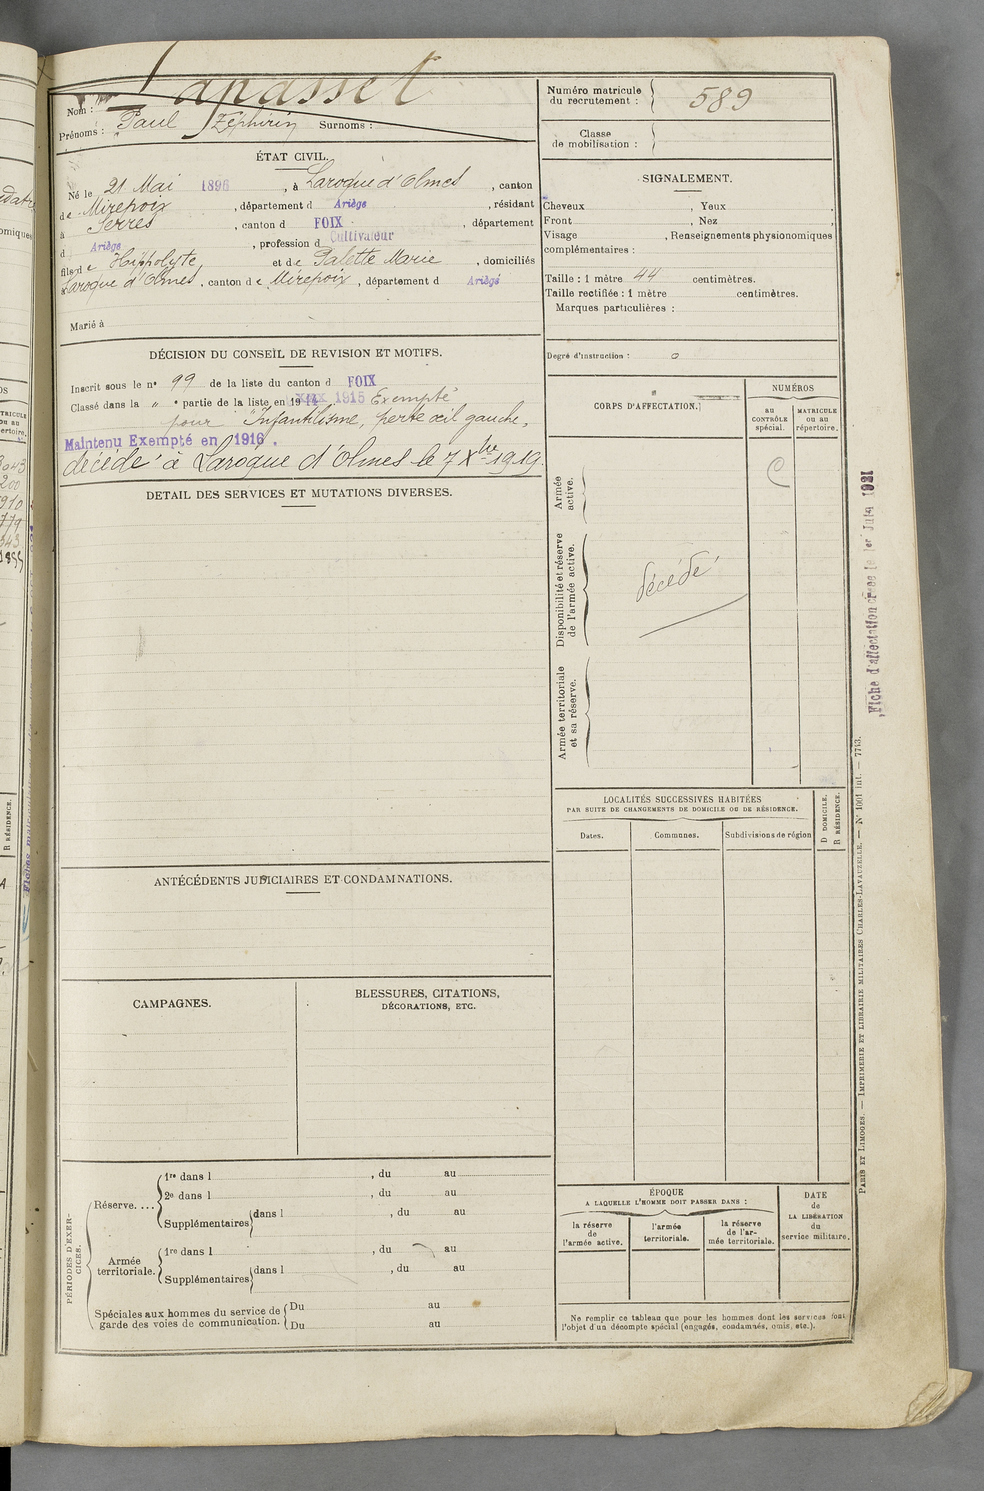 Nom : Lapasset
Prénoms : Paul Zéphirin Surnoms :
Numéro matricule du recrutement : 589
Classe de mobilisation :
ÉTAT CIVIL.
Né le 21 Mai 1896, à Laroque d'Olmes, canton
de Mirepoix, département d Ariège, résidant
à Serres, canton d FOIX, département
d Ariège, profession d Cultivateur
fils de Hippolyte et de Palette Marie, domiciliés
Laroque d'Olmes, canton de Mirepoix, département d Ariège
Marié à
SIGNALEMENT.
Cheveux , Yeux ,
Front , Nez ,
Visage , Renseignements physionomiques
complémentaires :
Taille : 1 mètre 44 centimètres.
Taille rectifiée : 1 mètre centimètres.
Marques particulières :
Degré d'instruction : 0
DÉCISION DU CONSEIL DE REVISION ET MOTIFS.
Inscrit sous le n° 99 de la liste du canton d FOIX
Classé dans la " e partie de la liste en 1915 Exempté
pour "Infantilisme, perte œil gauche.
Maintenu Exempté en 1916.
décédé à Laroque d'Olmes le 7 Xbre 1919.
DETAIL DES SERVICES ET MUTATIONS DIVERSES.
CORPS D'AFFECTATION.
NUMÉROS
AU CONTRÔLE spécial.
MATRICULE ou au répertoire.
Armée active.
C
Disponibilité et réserve de l'armée active.
décédé
Armée territoriale et sa réserve.
Fiche d'affectation créée le 1er Juin 1921
LOCALITÉS SUCCESSIVES HABITÉES
PAR SUITE DE CHANGEMENTS DE DOMICILE OU DE RÉSIDENCE.
Dates. Communes. Subdivisions de région
D DOMICILE.
R RÉSIDENCE.
ANTÉCÉDENTS JUDICIAIRES ET CONDAMNATIONS.
CAMPAGNES.
BLESSURES, CITATIONS,
DÉCORATIONS, ETC.
PÉRIODES D'EXERCICES.
Réserve....
1re dans l , du au
2e dans l , du au
Supplémentaires dans l , du au
Armée territoriale.
1re dans l , du au
Supplémentaires dans l , du au
Spéciales aux hommes du service de Du au
garde des voies de communication. Du au
ÉPOQUE
A LAQUELLE L'HOMME DOIT PASSER DANS :
la réserve de l'armée active.
l'armée territoriale.
la réserve de l'armée territoriale.
DATE de LA LIBÉRATION du service militaire.
Ne remplir ce tableau que pour les hommes dont les services font
l'objet d'un décompte spécial (engagés, condamnés, omis, etc.).
PARIS ET LIMOGES. — IMPRIMERIE ET LIBRAIRIE MILITAIRES CHARLES-LAVAUZELLE. — N° 1001 int. — 7713.